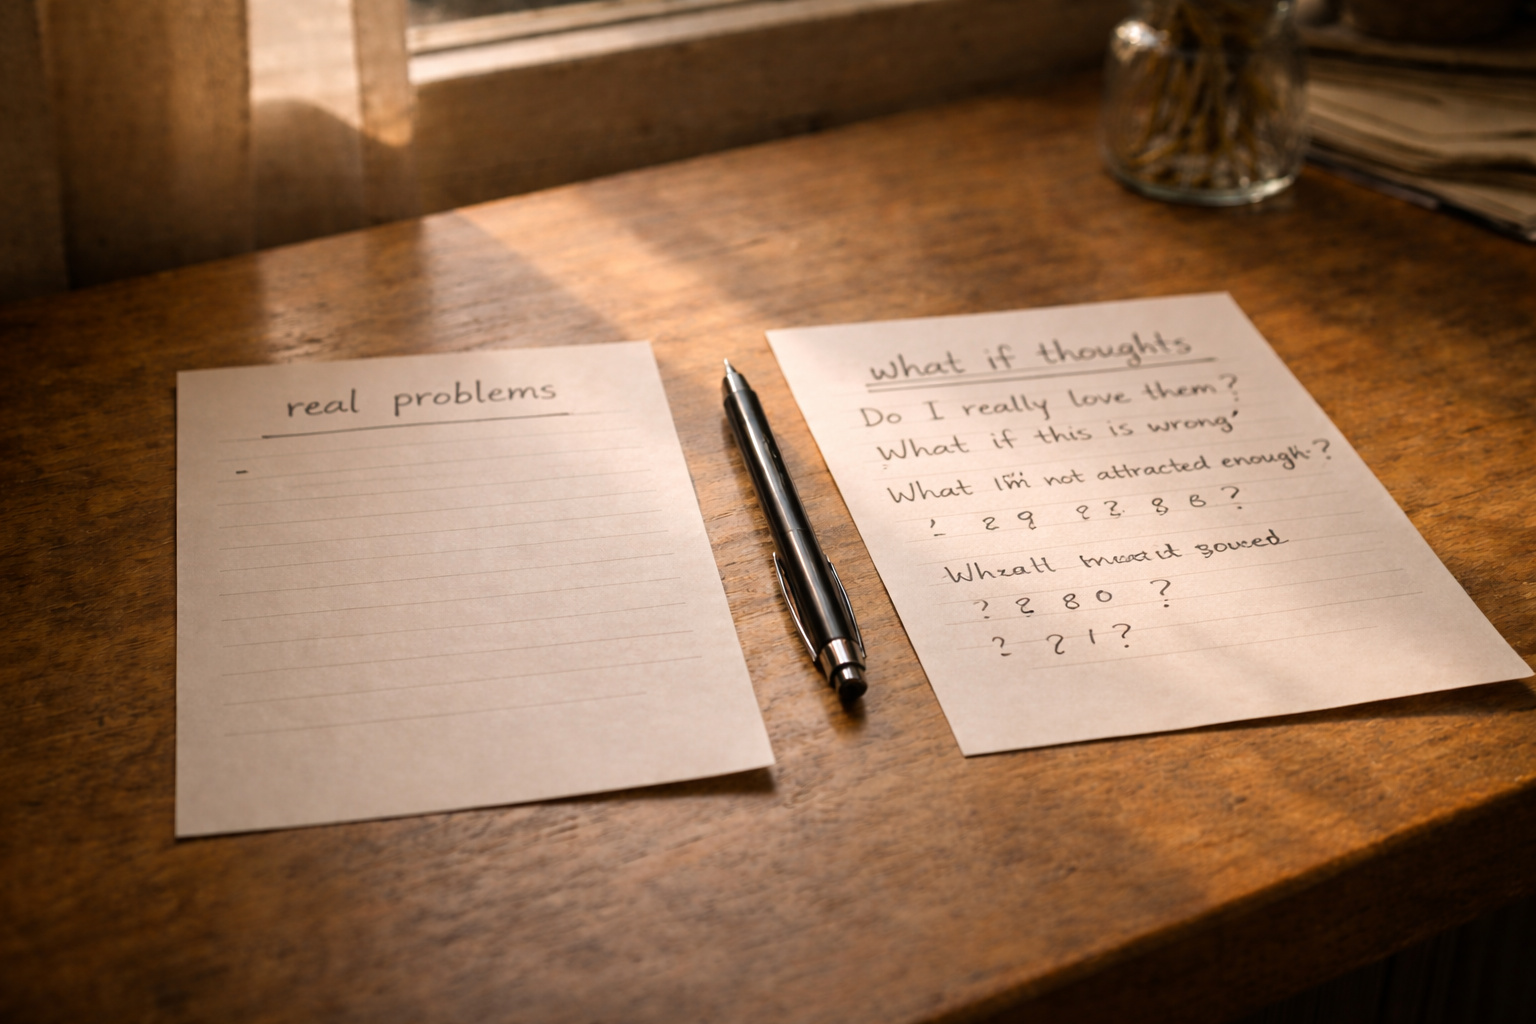 real problems
-
what if thoughts
Do I really love them?
What if this is wrong'
What I'm not attracted enough.?
? ?
? 8 0 ?
? 2 1 ?